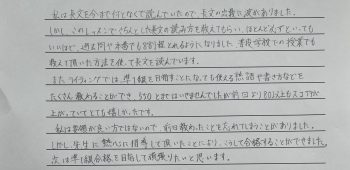 私は長文を今まで何となくで読んでいたので、長文の点数に波がありました。
しかし、このレッスンでくろんとした長文の読み方を教えてもらい、ほとんど必ずといっても
いいほど、過去問や本番でも8割超とれるようになりました。普段学校での授業でも
教えて頂いた方法を使って長文を読んでいます。
また、ライティングでは、準1級を目指すことになっても使える熟語や書き方などを
たくさん教わることができ、550とまではいきませんでしたが前回より80以上もスコアが
上がっていてとても嬉しかったです。
私は要領が良い方ではないので、前回教わったことを忘れてしまうことがありました。
しかし、先生に熱心に指導して頂いたことにより、こうして合格することができました。
次は準1級合格を目指して頑張りたいと思います。